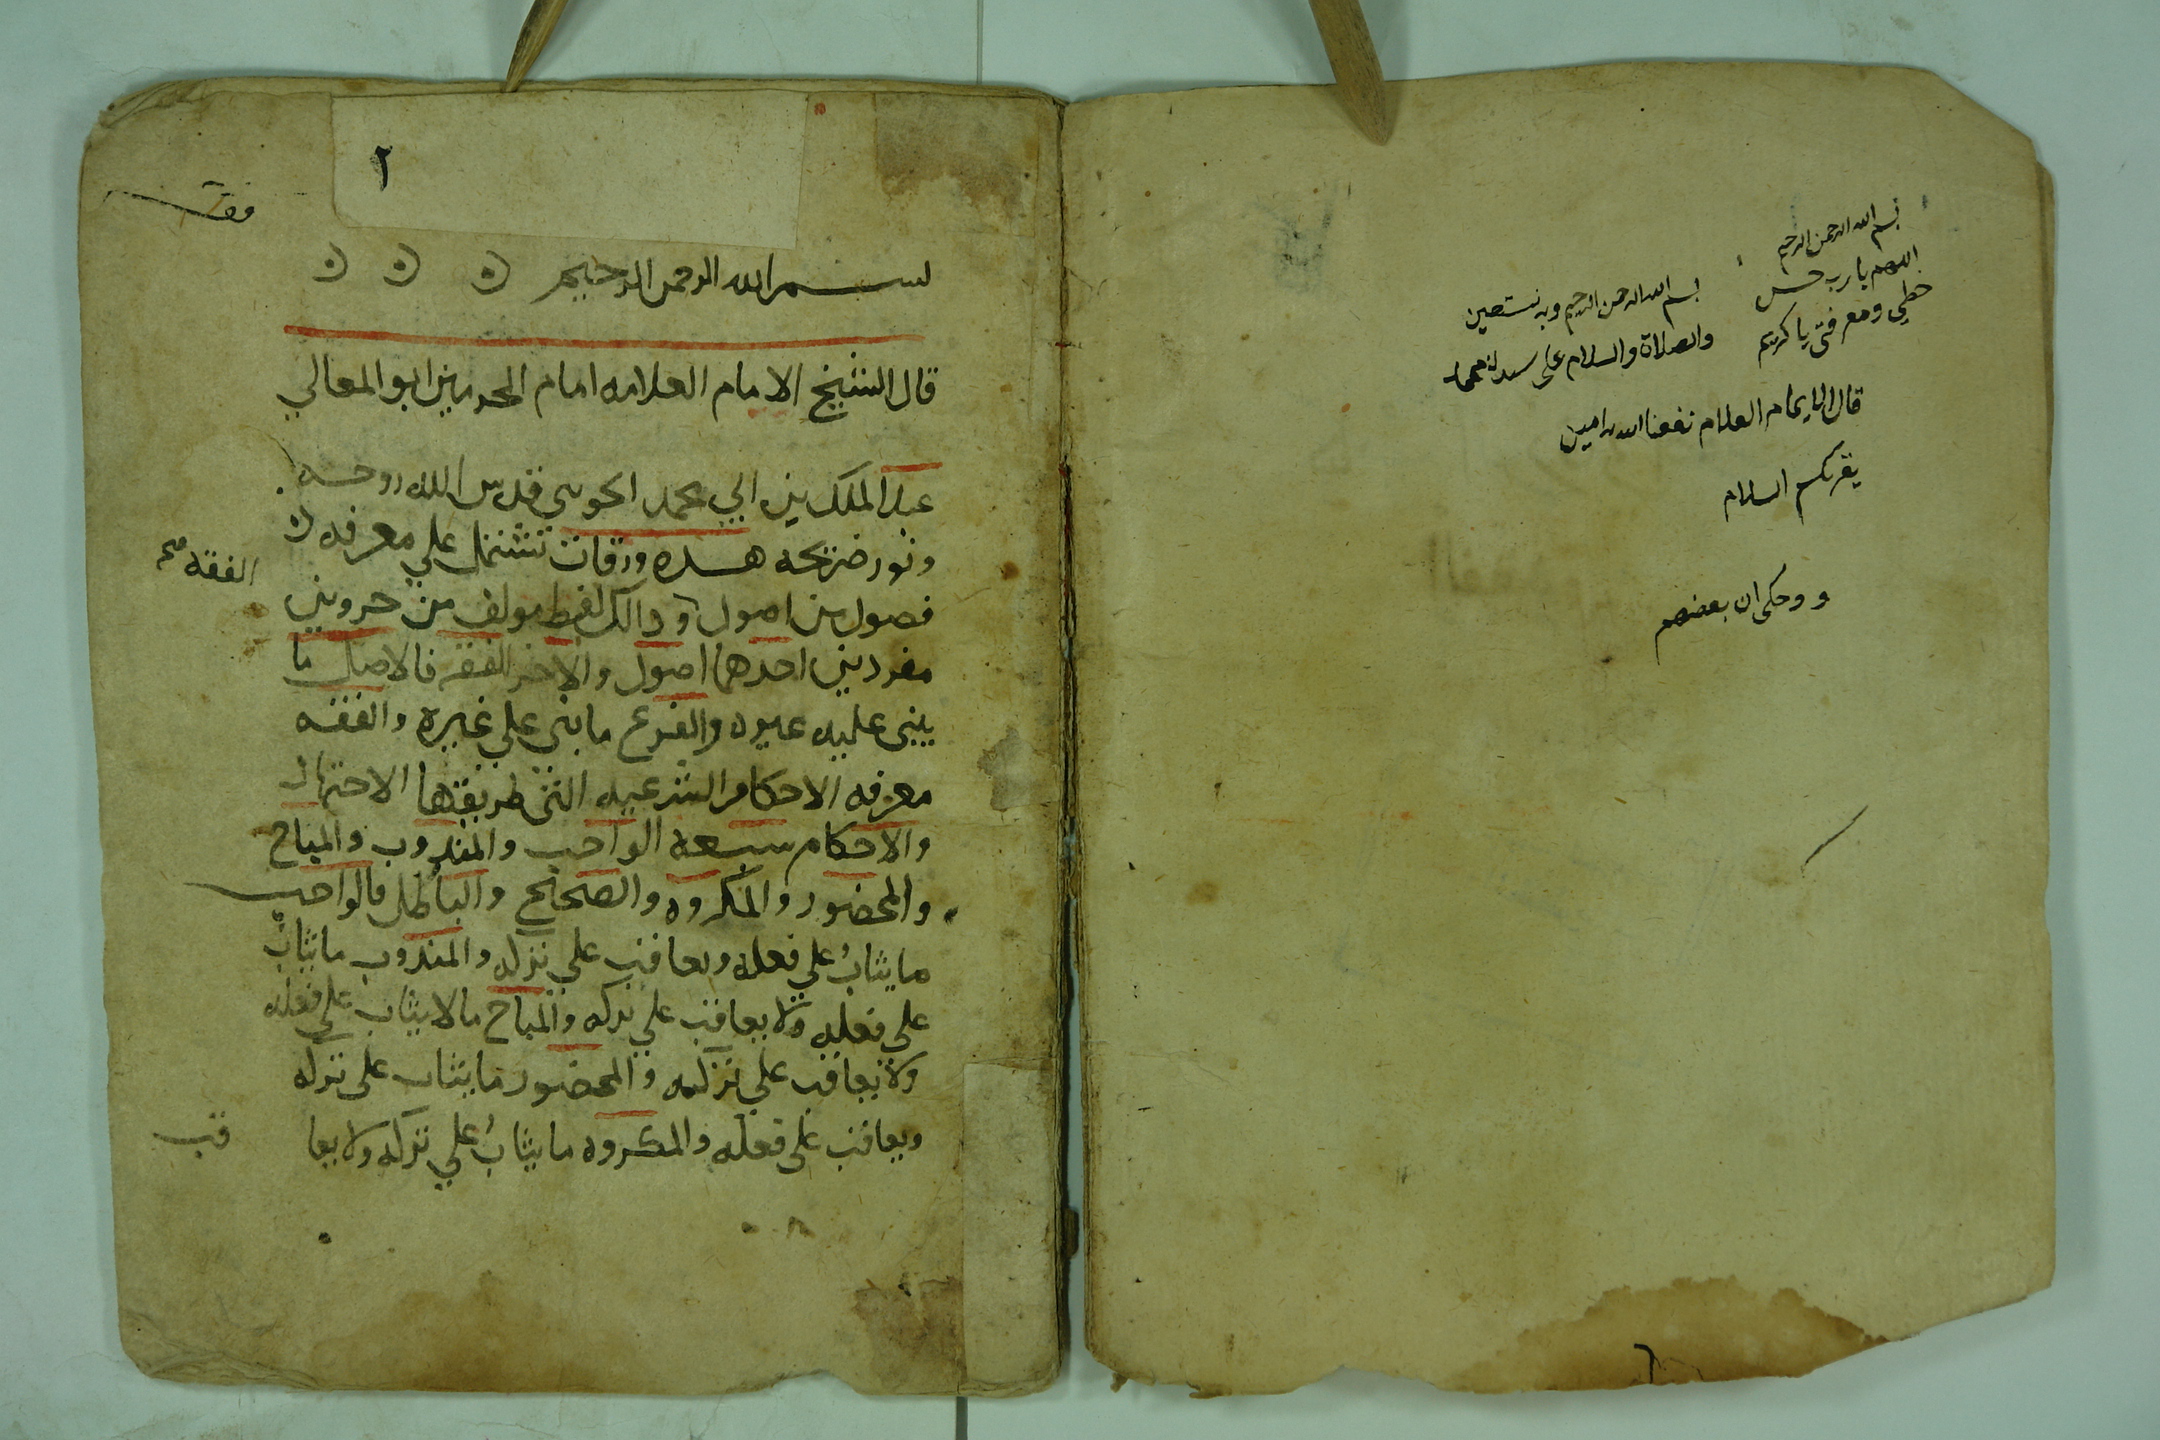 بسم الله الرحمن الرحيم
اللهم يا رب حسن
خطي ومعرفتي يا كريم
بسم الله الرحمن الرحيم وبه نستعين
والصلاة والسلام على سيدنا محمد
قال الايمام العلام نفعنا الله به امين
يقريكم السلام
و وحكى ان بعضهم
٢
فقه
بسم الله الرحمن الرحيم
قال الشيخ الامام العلامه امام الحرمين ابو المعالي
عبد الملك بن ابي محمد الجويني قدس الله روحه
ونور ضريحه هذه ورقات تشتمل علي معرفه
فصول من اصول الفقه صح وذالك لفظ مولف من جزوين
مفردين احدهما اصول والاخر الفقه فالاصل ما
يبنى عليه غيره والفرع ما بني علي غيره والفقه
معرفه الاحكام الشرعيه التي طريقتها الاجتهاد
والاحكام سبعة الواجب والمندوب والمباح
والمحضور والمكروه والصحيح والباطل فالواجب
ما يثاب علي فعله ويعاقب علي تركه والمندوب ما يثاب
على فعله ولا يعاقب علي تركه والمباح ما لا يثاب علي فعله
ولا يعاقب علي تركه والمحضور ما يثاب على تركه
ويعاقب على فعله والمكروه ما يثاب علي تركه ولا يعا
قب